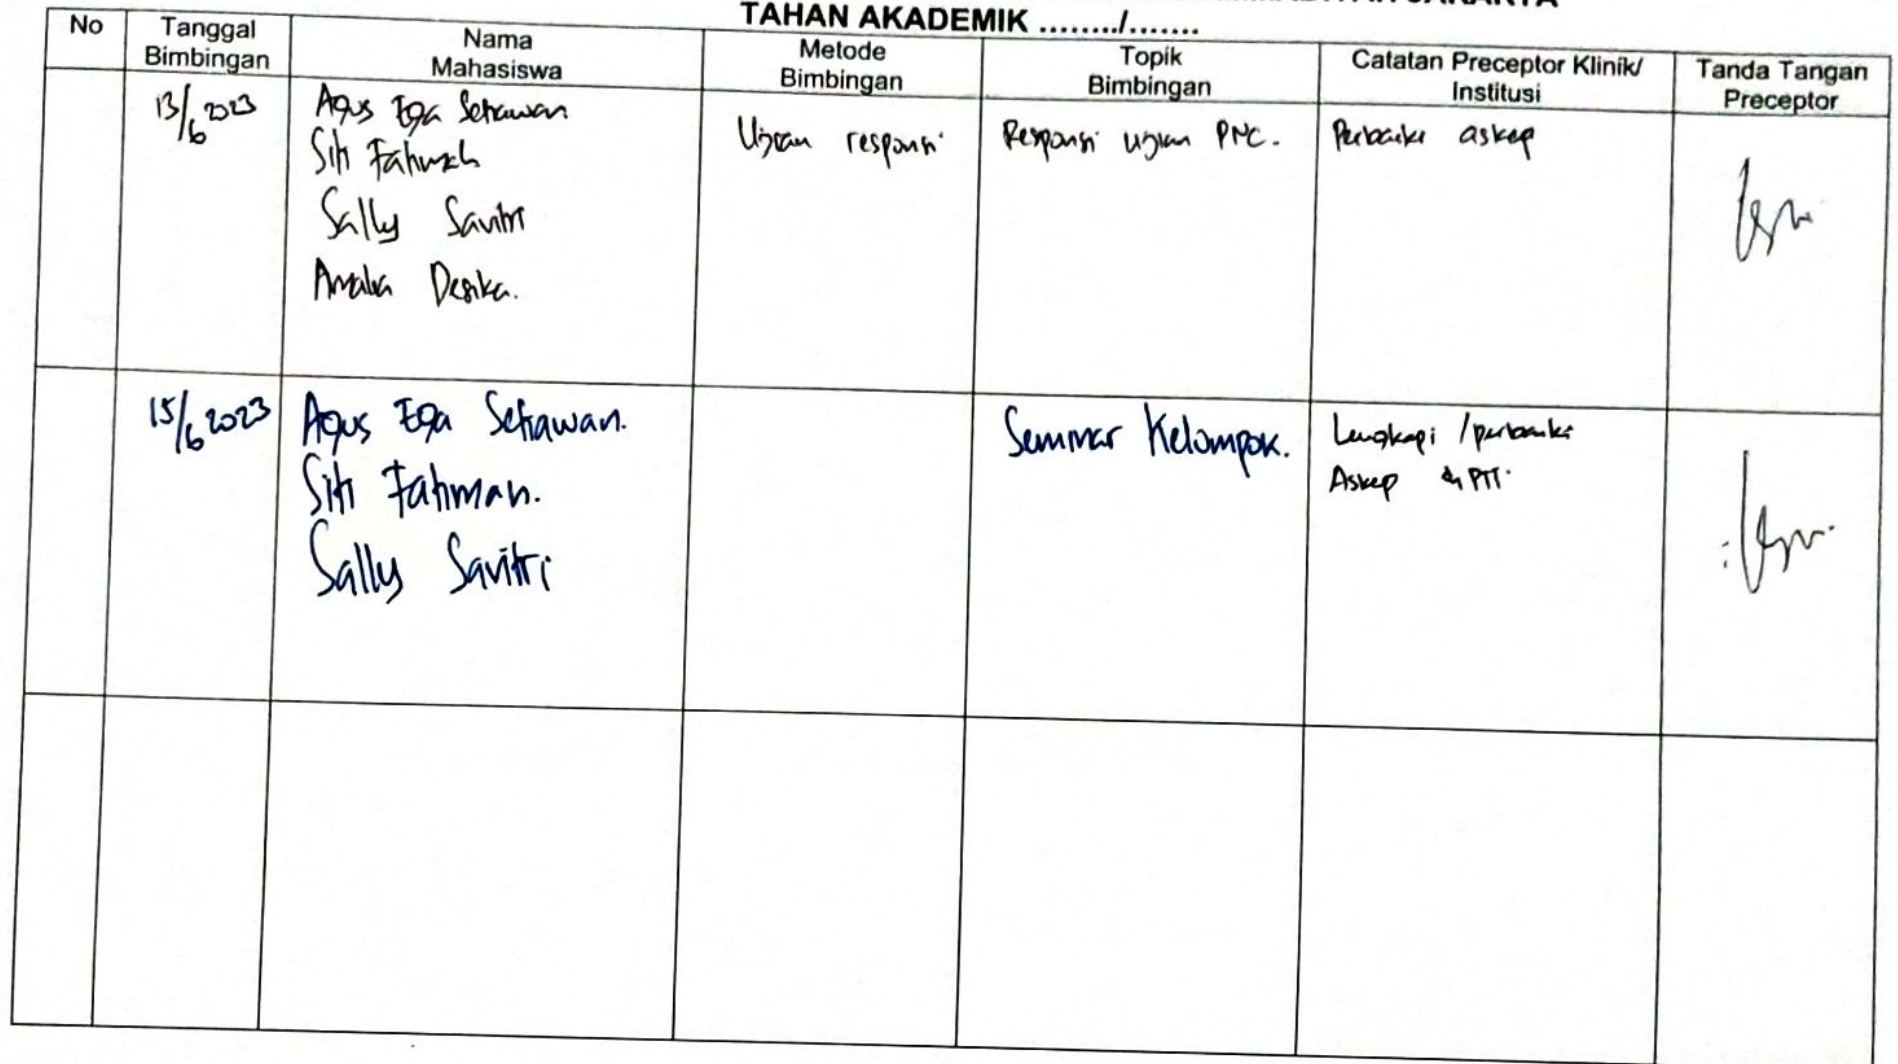 TAHAN AKADEMIK ......../.......
No
Tanggal
Bimbingan
Nama
Mahasiswa
Metode
Bimbingan
Topik
Bimbingan
Catatan Preceptor Klinik/
Institusi
Tanda Tangan
Preceptor
13/6 2023
Agus Ega Setiawan
Siti Fatimah
Sally Savitri
Amalia Desika.
Ujian responsi
Responsi ujian PNC.
Perbaiki askep
15/6 2023
Agus Ega Setiawan.
Siti Fatimah.
Sally Savitri
Seminar Kelompok.
Lengkapi / perbaiki
Askep